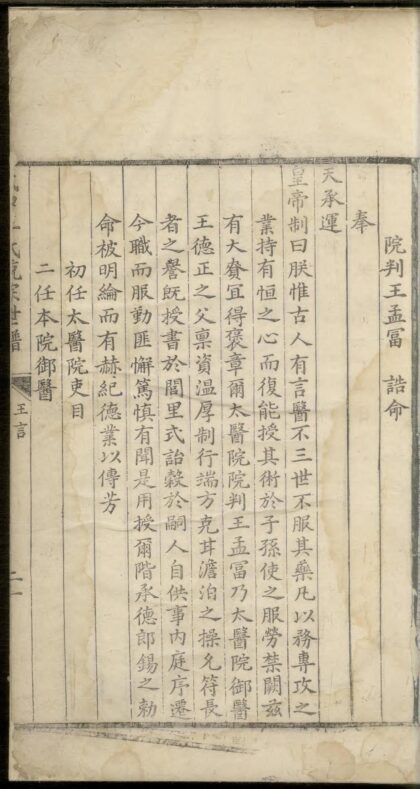 院判王孟冨 誥命
奉
天承運
皇帝制曰朕惟古人有言醫不三世不服其藥凡以務專攻之
業持有恒之心而復能授其術於子孫使之服勞禁闕兹
有大賚宜得褒章爾太醫院院判王孟冨乃太醫院御醫
王德正之父禀資温厚制行端方克甘澹泊之操允符長
者之譽旣授書於閭里式詒穀於嗣人自供事内庭序遷
今職而服勤匪懈篤慎有聞是用授爾階承德郎錫之勅
命被明綸而有赫紀德業以傳芳
初任太醫院吏目
二任本院御醫
氏宗世譜
王言
二